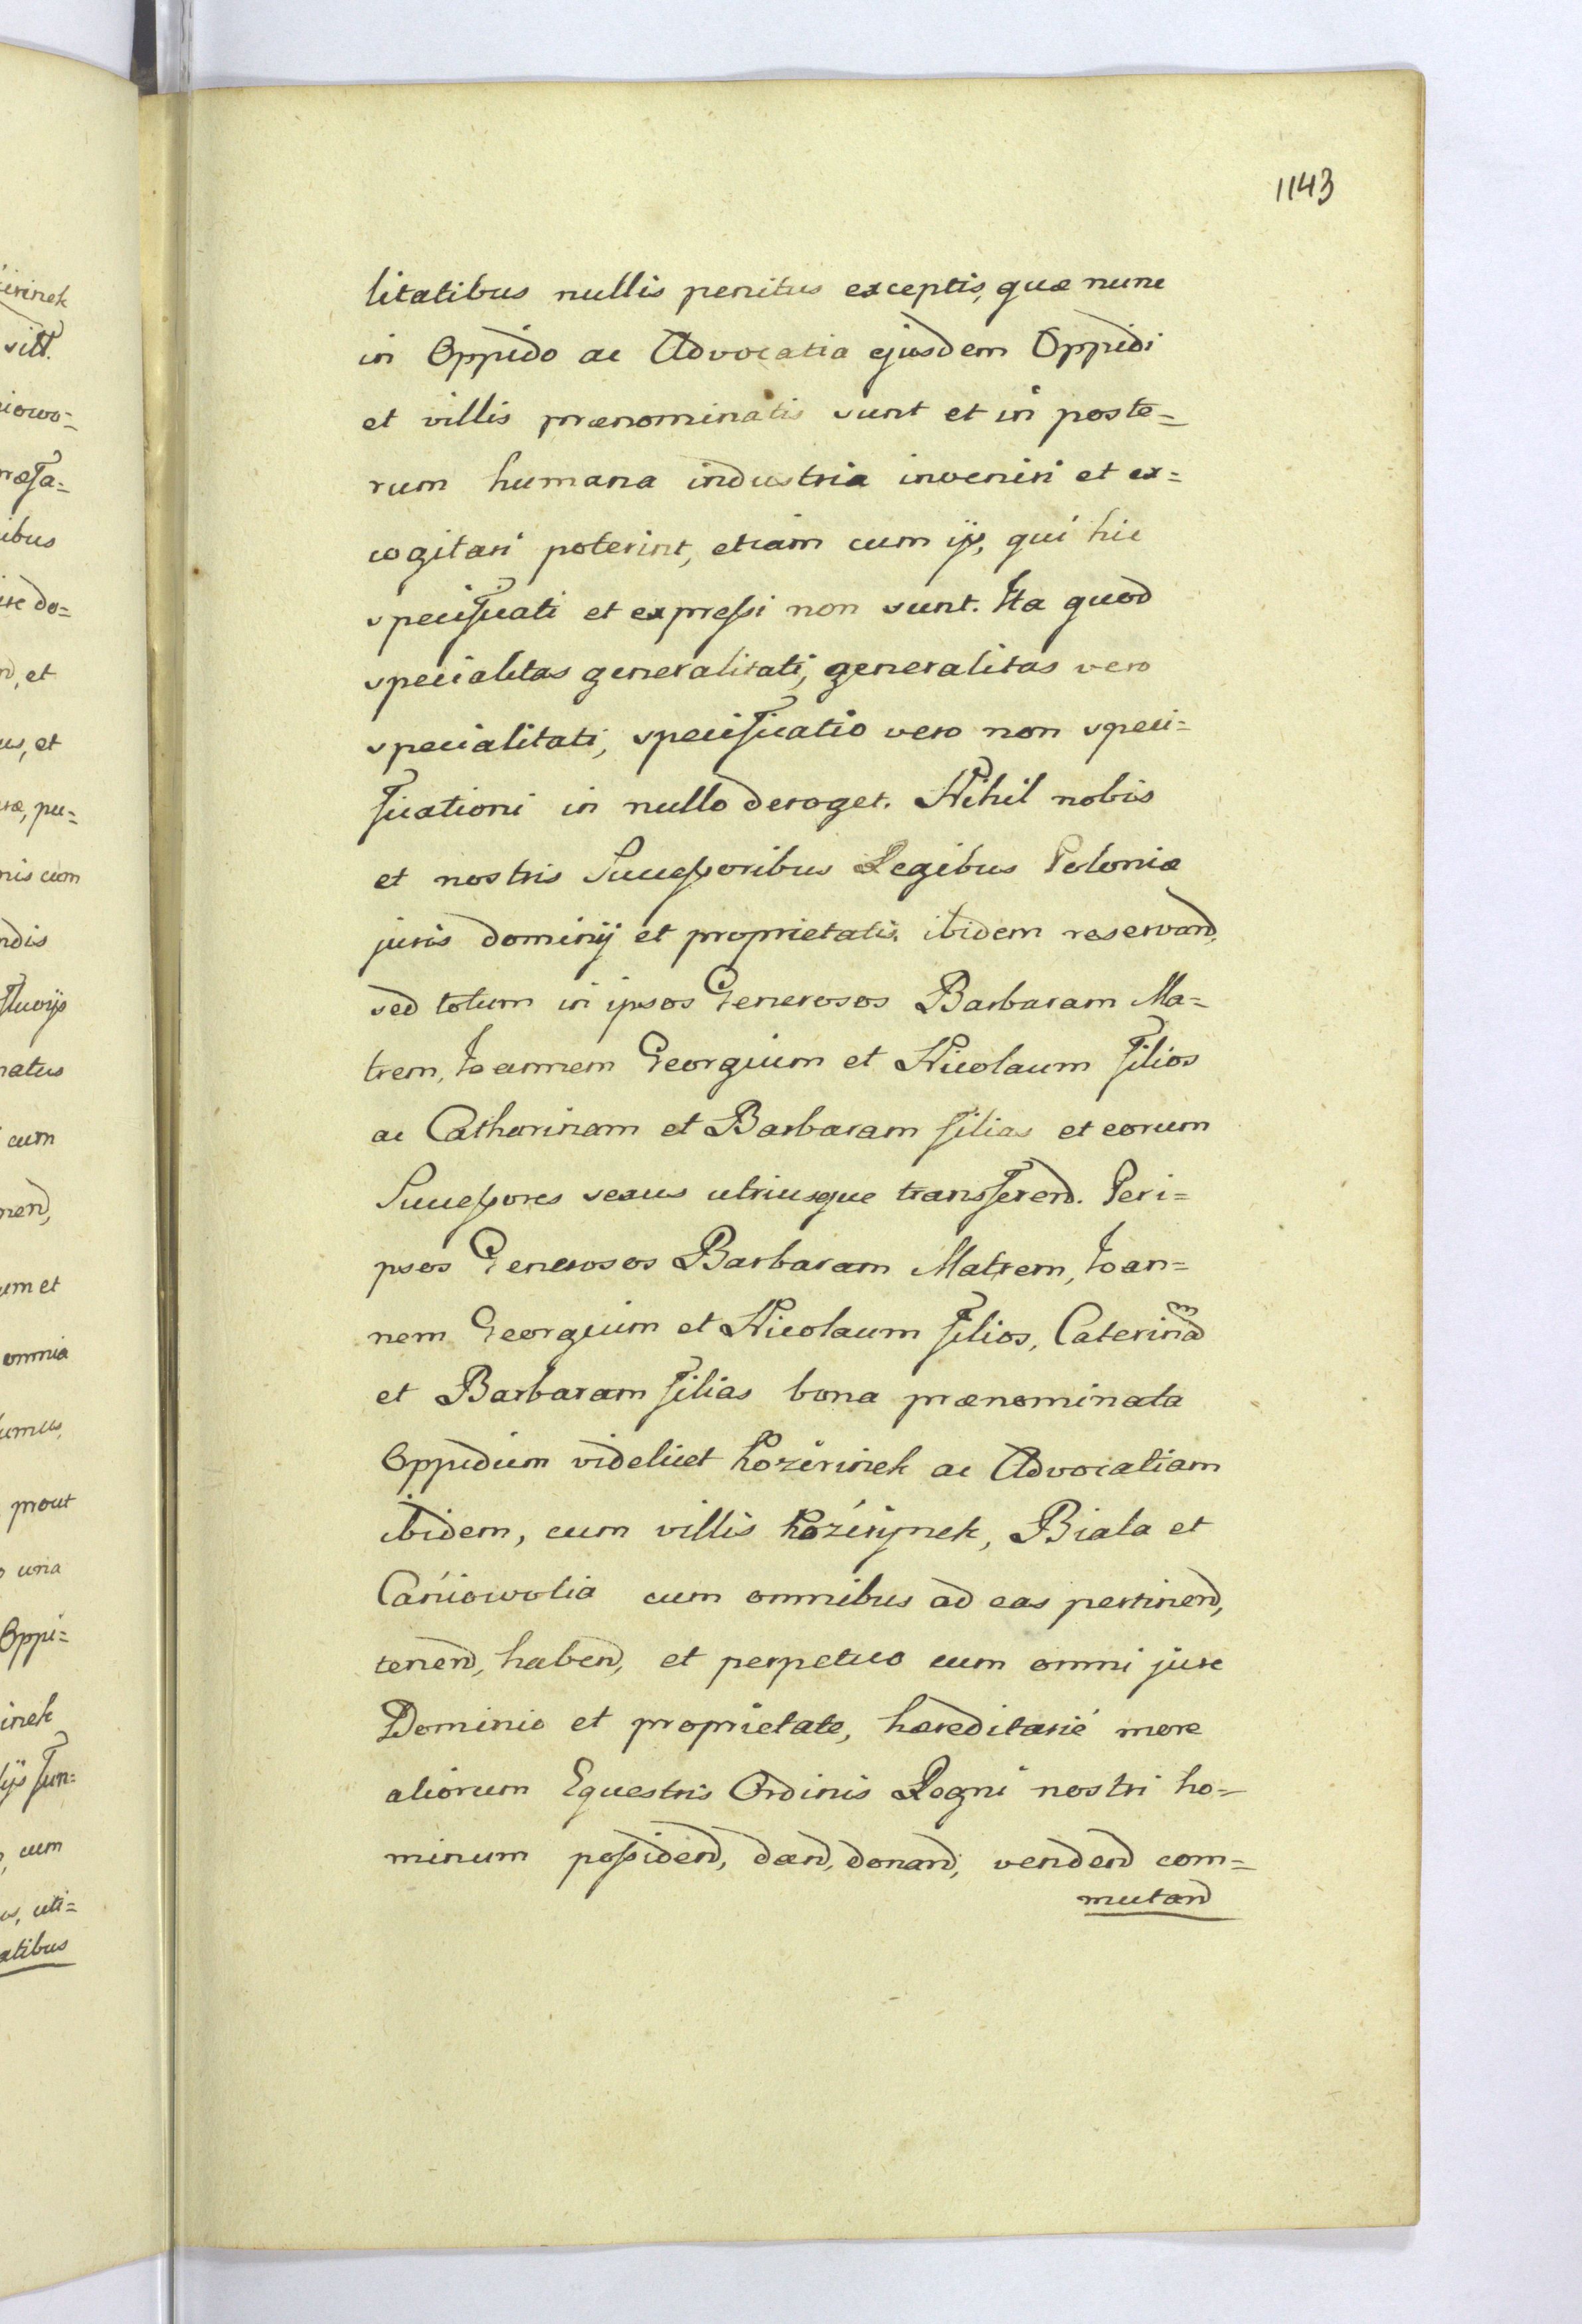 1143
litatibus nullis penitus exceptis, quæ nunc
in Oppido ac Advocatia ejusdem Oppidi
et villis prænominatis sunt et in poste=
rum humana industria inveniri et ex=
cogitari poterint, etiam cum ijs, qui hic
specificati et expressi non sunt. Ita quod
specialitas generalitati, generalitas vero
specialitati, specificatio vero non speci=
ficationi in nullo deroget. Nihil nobis
et nostris Successoribus Regibus Poloniæ
juris dominij et proprietatis, ibidem reservand,
sed totum in ipsos Generosos Barbaram Ma=
trem, Joannem Georgium et Nicolaum filios
ac Catharinam et Barbaram filias et eorum
Successores sexus utriusque transferend. Peri=
psos Generosos Barbaram Matrem, Joan=
nem Georgium et Nicolaum filios, Caterinam
et Barbaram filias bona prænominata
Oppidum videlicet Kozirinek ac Advocatiam
ibidem, cum villis Kozirynek, Biala et
Cańiowolia cum omnibus ad eas pertinend,
tenend, habend, et perpetuo cum omni jure
Dominio et proprietate, hæreditarié more
aliorum Equestris Ordinis Regni nostri ho=
minum possidend, dand, donand, vendend com=
mutand
irinek
vill.
iowo=
ræfa=
ibus
ire do=
d, et
us, et
ræ, pu=
nis cum
ndis
fluvijs
natus
cum
nend,
um et
omnia
umus,
prout
o una
Oppi=
inek
ijs fun=
, cum
us, uti=
atibus